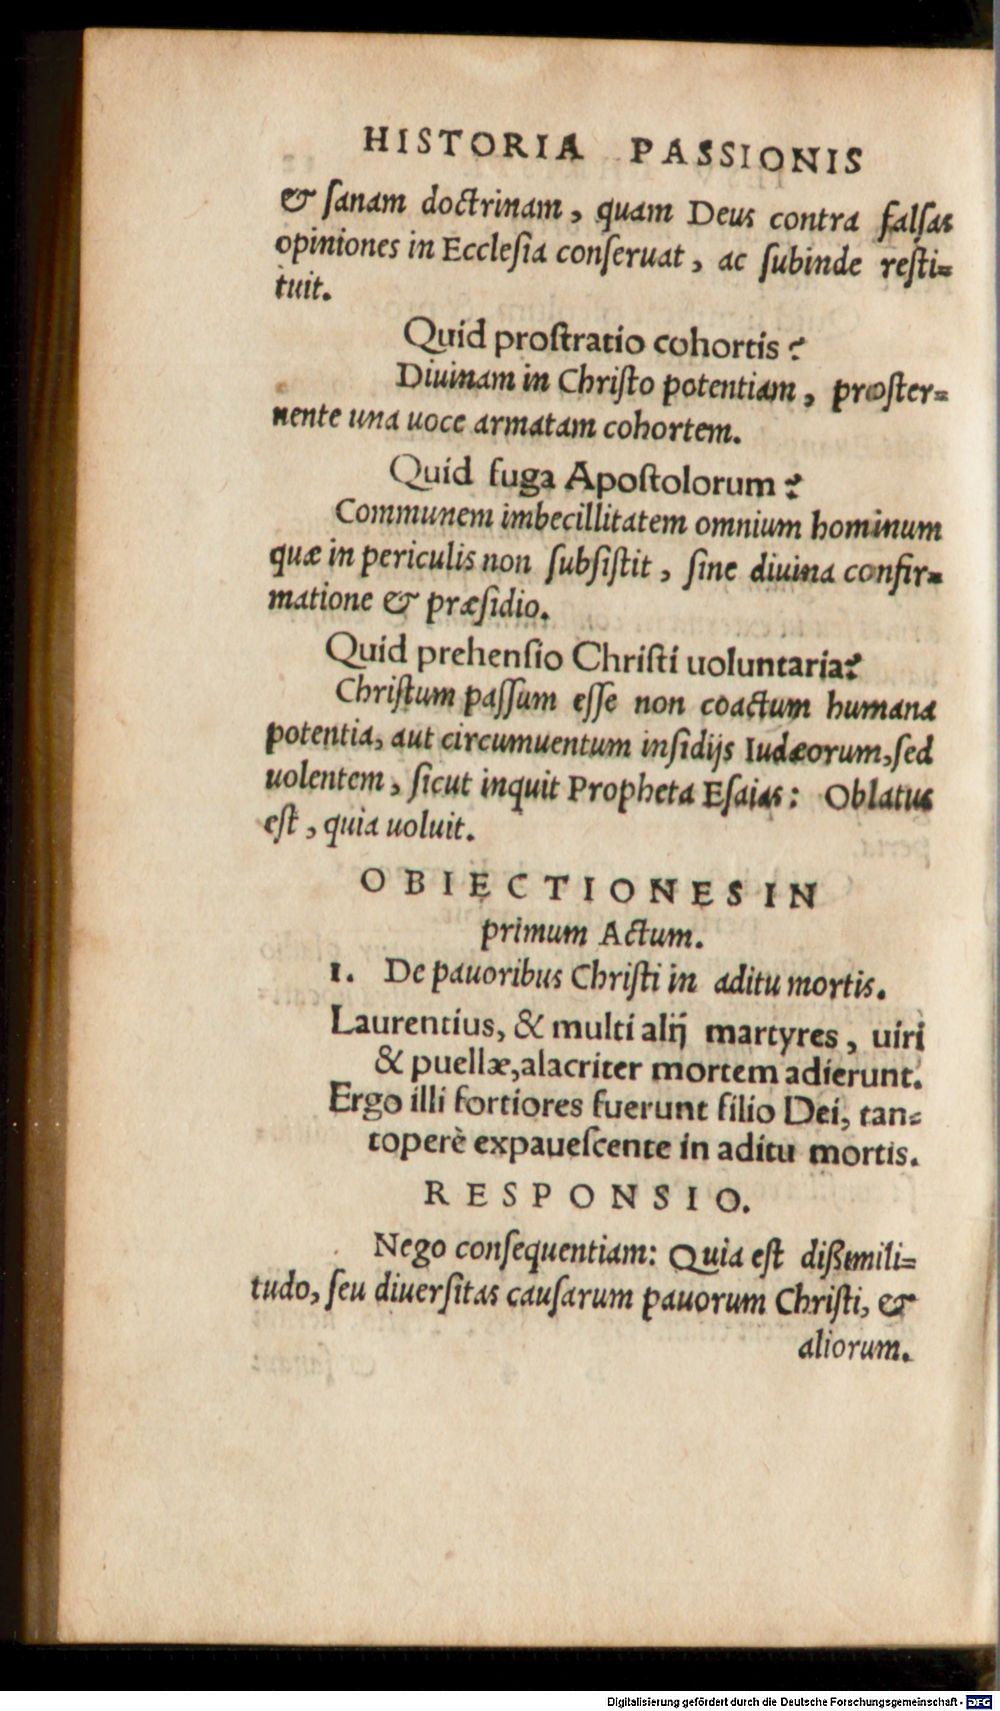 HISTORIA PASSIONIS
& ſanam doctrinam, quam Deus contra falſas
opiniones in Eccleſia conſeruat, ac ſubinde reſti=
tuit.
Quid proſtratio cohortis?
Diuinam in Chriſto potentiam, proſter=
nente una uoce armatam cohortem.
Quid fuga Apoſtolorum?
Communem imbecillitatem omnium hominum
quæ in periculis non ſubſiſtit, ſine diuina confir=
matione & præſidio.
Quid prehenſio Chriſti uoluntaria?
Chriſtum paſſum eſſe non coactum humana
potentia, aut circumuentum inſidijs Iudæorum, ſed
uolentem, ſicut inquit Propheta Eſaias: Oblatus
eſt, quia uoluit.
OBIECTIONES IN
primum Actum.
1. De pauoribus Chriſti in aditu mortis.
Laurentius, & multi alij martyres, uiri
& puellæ, alacriter mortem adierunt.
Ergo illi fortiores fuerunt filio Dei, tan=
toperè expaueſcente in aditu mortis.
RESPONSIO.
Nego conſequentiam: Quia eſt dißimili=
tudo, ſeu diuerſitas cauſarum pauorum Chriſti, &
aliorum.
Digitalisierung gefördert durch die Deutsche Forschungsgemeinschaft - DFG